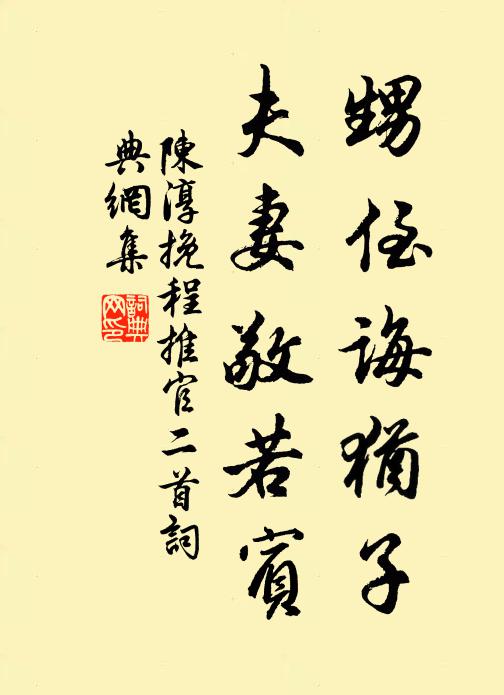 甥侄誨猶子
夫妻敬若賓
陳淳挽程推官二首詞
典網集
詞典网印